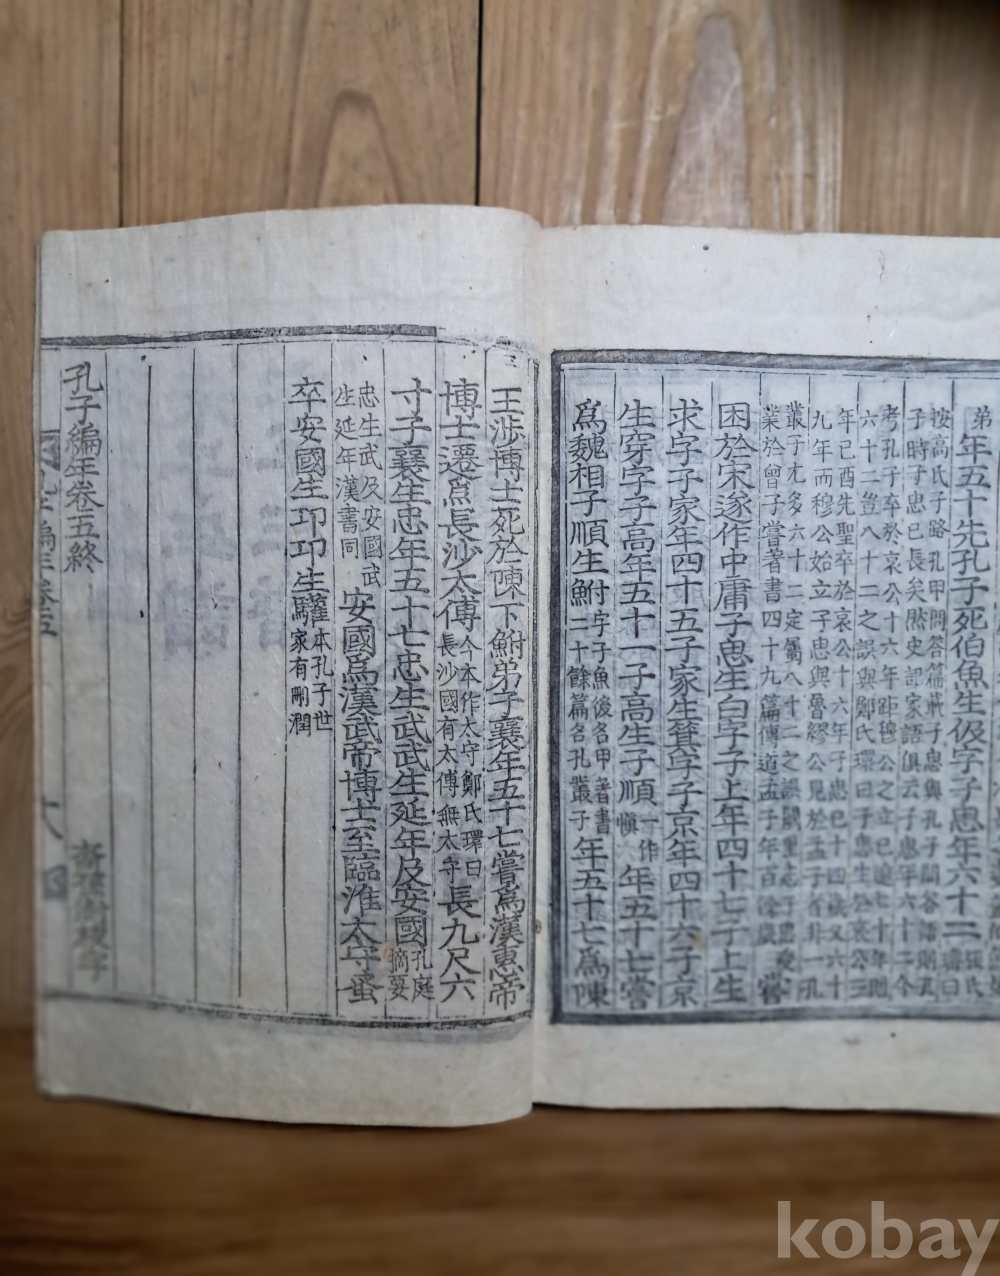 弟年五十先孔子死伯魚生伋字子思年六十二
按高氏子略孔甲問答篇載子思與孔
子時子思已長矣然史記家語俱云子思年六十二今
考孔子卒於哀公十六年距穆公之立已
六十二豈八十二之誤與鄭氏環曰
年己酉先聖卒於哀公十六年子思已十四歲又六十
九年而穆公始立子思與魯繆公見於孟子
叢子尤多六十二定屬八十二之誤
業於曾子嘗著書四十九篇傳道孟子年百餘歲 嘗
困於宋遂作中庸子思生白字子上年四十七子上生
求字子家年四十五子家生箕字子京年四十六子京
生穿字子高年五十一子高生子順一作愼年五十七嘗
爲魏相子順生鮒字子魚後名甲著書二十餘篇名孔叢子年五十七爲陳
王涉博士死於陳下鮒弟子襄年五十七嘗爲漢惠帝
博士遷爲長沙太傅今本作太守鄭氏環曰長沙國有太傅無太守長九尺六
寸子襄生忠年五十七忠生武武生延年及安國孔庭摘要
忠生武及安國武生延年漢書同安國爲漢武帝博士至臨淮太守蚤
卒安國生卭卭生驩本孔子世家有刪潤
孔子編年卷五終